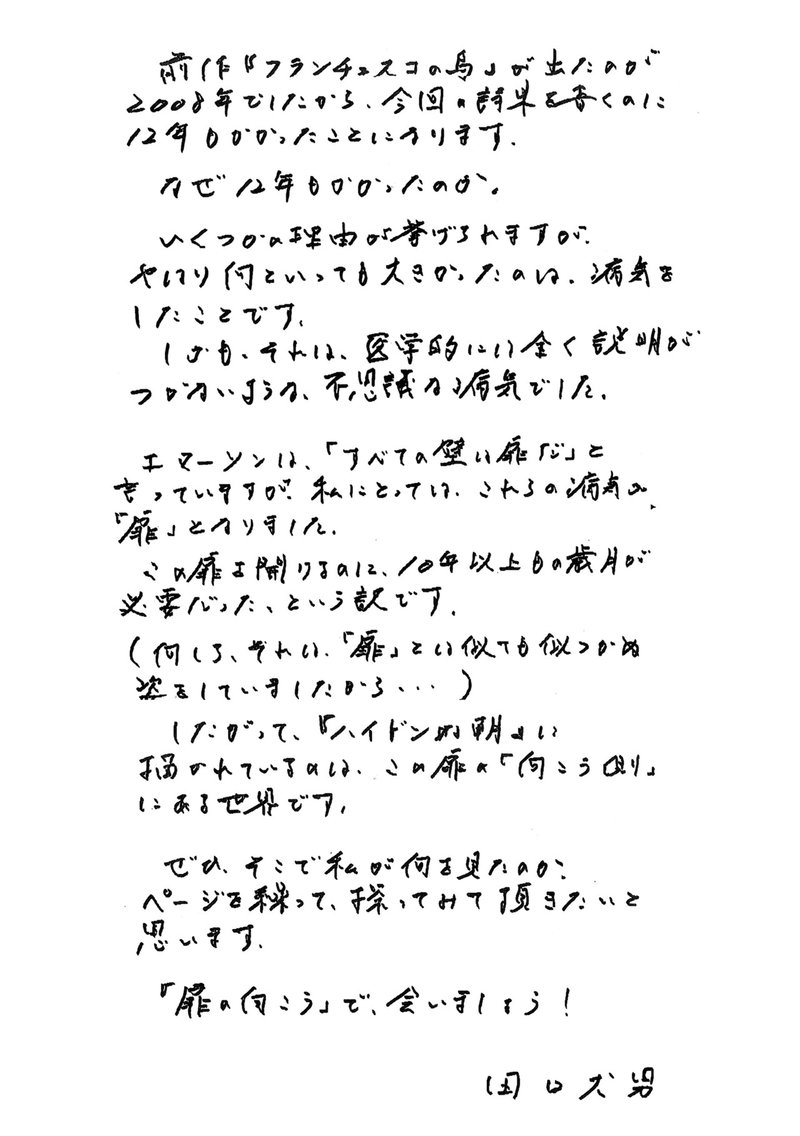 前作『フランチェスコの鳥』が出たのが
2008年でしたから、今回の詩集を書くのに
12年もかかったことになります。
なぜ12年もかかったのか。
いくつかの理由が挙げられますが、
やはり何といっても大きかったのは、病気を
したことです。
しかも、それは、医学的には全く説明が
つかないような、不思議な病気でした。
エマーソンは、「すべての壁は扉だ」と
言っていますが、私にとっては、これらの病気が
「扉」となりました。
この扉を開けるのに、10年以上もの歳月が
必要だった、という訳です。
(何しろ、それは、「扉」とは似ても似つかぬ
姿をしていましたから・・・)
したがって、『ハイドンな朝』に
描かれているのは、この扉の「向こう側」
にある世界です。
ぜひ、そこで私が何を見たのか、
ページを繰って、探ってみて頂きたいと
思います。
「扉の向こう」で、会いましょう!
田口犬男